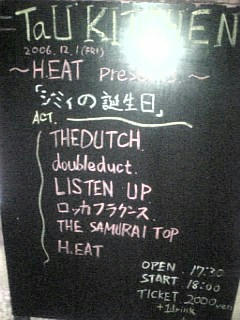 TaU KITCHEN
2006.12.1(FRI)
~H.EAT presents~
「ジミィの誕生日」
ACT.
THEDUTCH.
doubleduct.
LISTEN UP
ロッカフラワーズ.
THE SAMURAI TOP
H.EAT
OPEN 17:30
START 18:00
TICKET 2000yen
+1drink